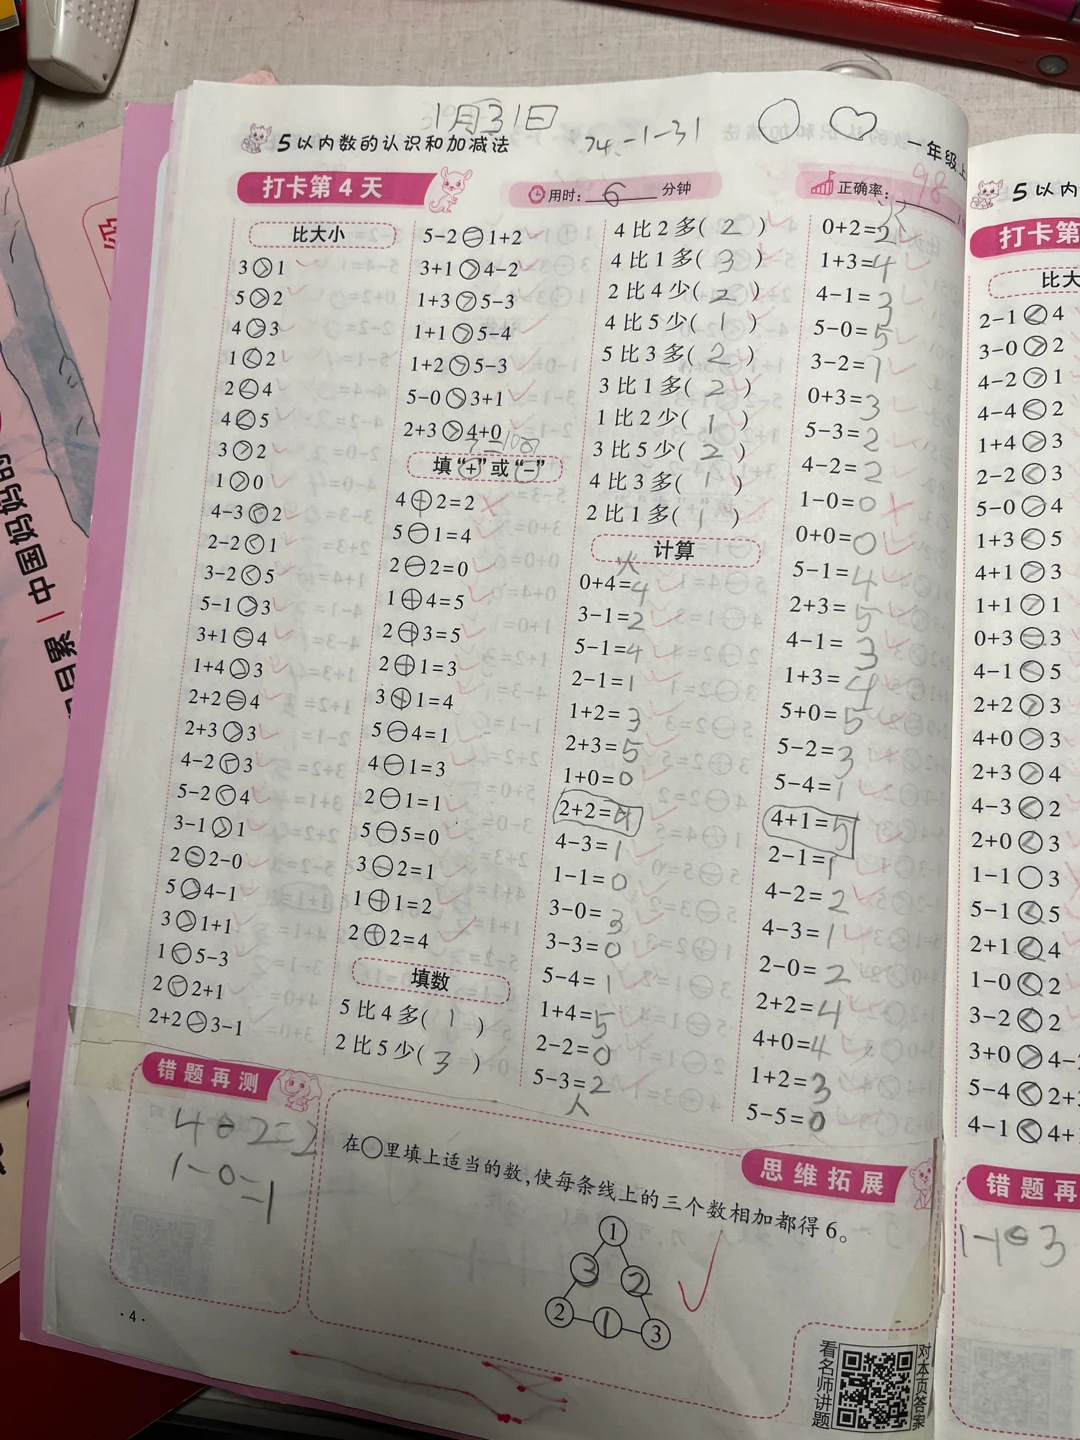 1月31日
5以内数的认识和加减法
一年级上
打卡第4天
用时:6分钟
正确率:98
比大小
3>1
5>2
4>3
1<2
2<4
4<5
3>2
1>0
4-3<2
2-2<1
3-2<5
5-1>3
3+1=4
1+4>3
2+2=4
2+3>3
4-2<3
5-2<4
3-1>1
2=2-0
5>4-1
3>1+1
1<5-3
2<2+1
2+2>3-1
5-2=1+2
3+1>4-2
1+3>5-3
1+1>5-4
1+2>5-3
5-0>3+1
2+3>4+0
填“+”或“-”
4+2=2
5-1=4
2-2=0
1+4=5
2+3=5
2+1=3
3+1=4
5-4=1
4-1=3
2-1=1
5-5=0
3-2=1
1+1=2
2+2=4
填数
5比4多(1)
2比5少(3)
4比2多(2)
4比1多(3)
2比4少(2)
4比5少(1)
5比3多(2)
3比1多(2)
1比2少(1)
3比5少(2)
4比3多(1)
2比1多(1)
计算
火
0+4=4
3-1=2
5-1=4
2-1=1
1+2=3
2+3=5
1+0=0
2+2=4
4-3=1
1-1=0
3-0=3
3-3=0
5-4=1
1+4=5
2-2=0
5-3=2
人
0+2=2
1+3=4
4-1=3
5-0=5
3-2=1
0+3=3
5-3=2
4-2=2
1-0=0
0+0=0
5-1=4
2+3=5
4-1=3
1+3=4
5+0=5
5-2=3
5-4=1
4+1=5
2-1=1
4-2=2
4-3=1
2-0=2
2+2=4
4+0=4
1+2=3
5-5=0
错题再测
4-2=2
1-0=1
思维拓展
在○里填上适当的数,使每条线上的三个数相加都得6。
1
3 2
2 1 3
·4·
看名师讲题
对本页答案
5以内
打卡第
比大
2-1<4
3-0>2
4-2>1
4-4<2
1+4>3
2-2<3
5-0>4
1+3<5
4+1>3
1+1>1
0+3=3
4-1<5
2+2>3
4+0>3
2+3>4
4-3<2
2+0<3
1-1○3
5-1<5
2+1<4
1-0<2
3-2<2
3+0>4-
5-4<2+
4-1<4+
错题再
中国妈妈的